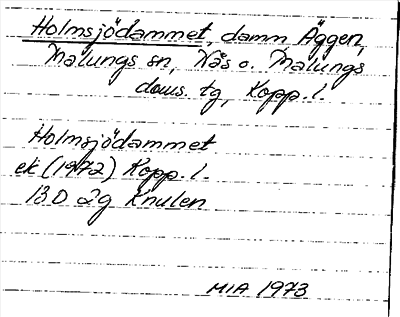 Holmsjödammet, damm Äggen,
Malungs sn, Nås o. Malungs
doms. tg, Kopp. l.
Holmsjödammet
ek (1972) Kopp. l.
13D 2g Knulen
MIA 1973